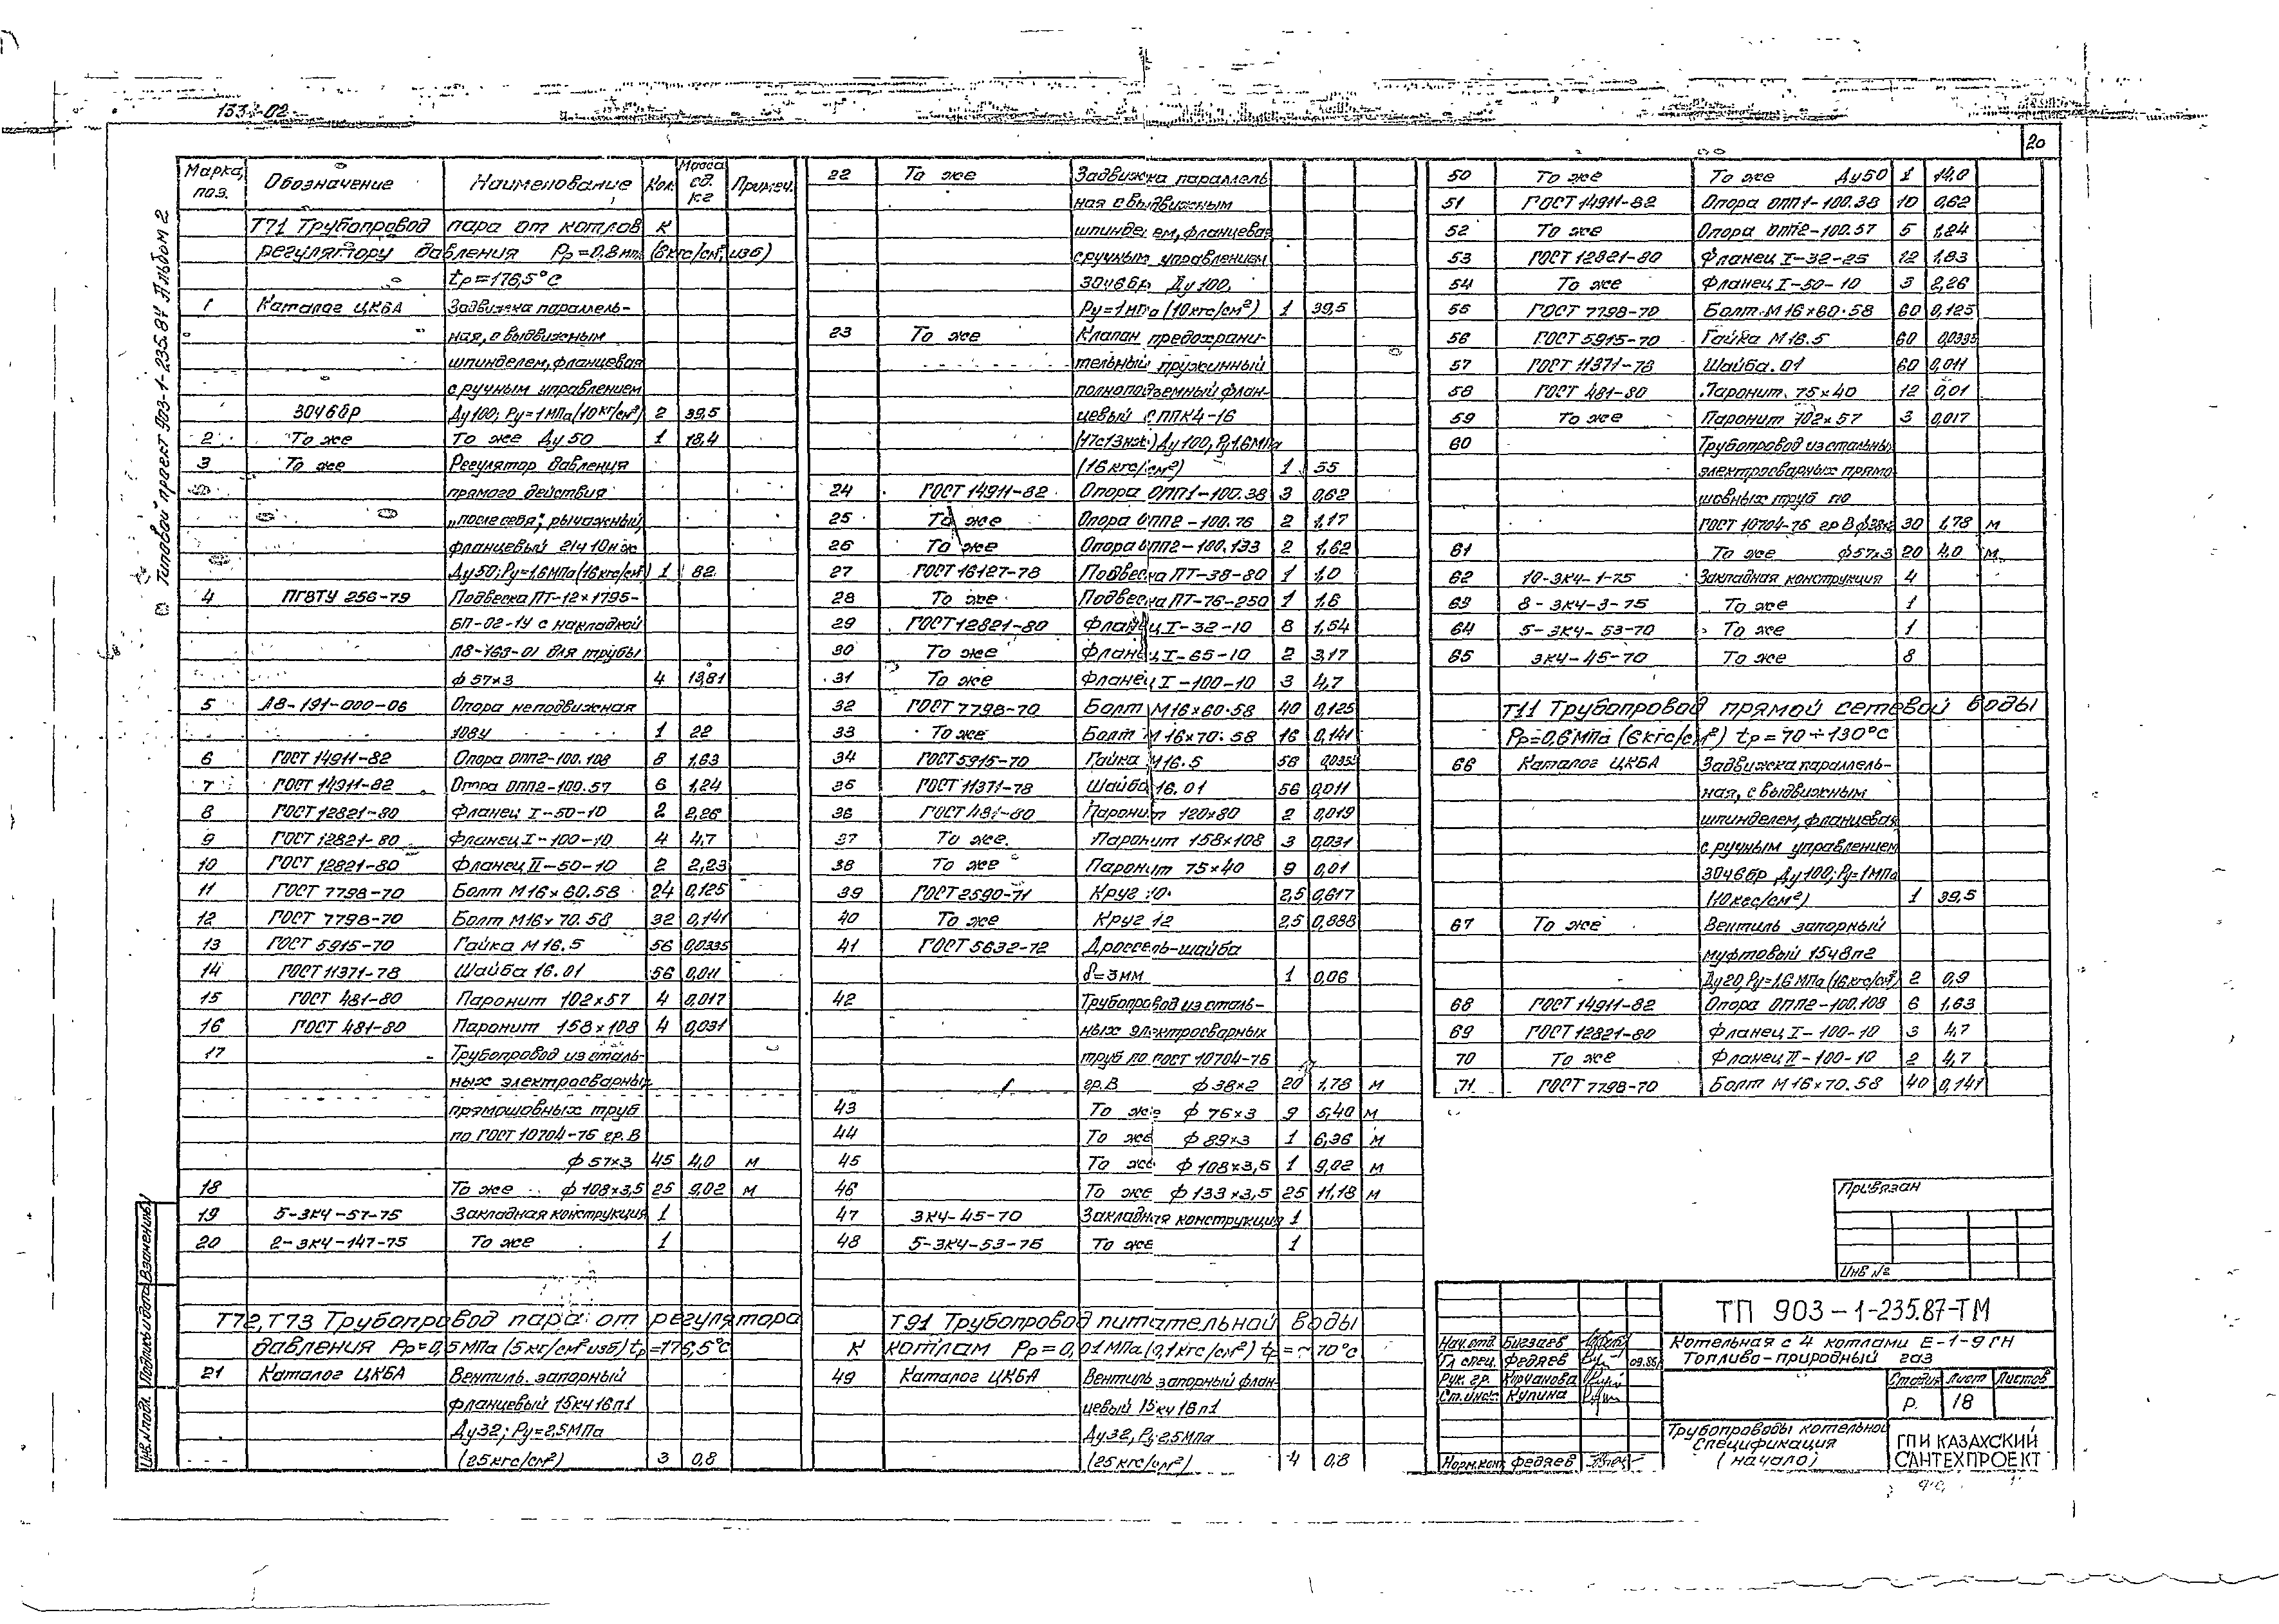 20
Типовой проект 903-1-235.87 Альбом 2
Марка, поз. Обозначение Наименование Кол. Масса ед. кг Примеч.
Т71 Трубопровод пара от котлов к
регулятору давления Рр=0,8 мпа (8кгс/см² изб)
tр=176,5°С
1 Каталог ЦКБА Задвижка параллель-
ная, с выдвижным
шпинделем, фланцевая
с ручным управлением
30ч6бр Ду100; Ру=1МПа(10кг/см²) 2 39,5
2 То же То же Ду50 1 18,4
3 То же Регулятор давления
прямого действия
„после себя", рычажный
фланцевый 21ч10нж
Ду50; Ру=1,6МПа(16кгс/см²) 1 82
4 ПГВТУ 256-79 Подвеска ПТ-12×1795-
БП-02-1У с накладкой
Л8-163-01 для трубы
ф57×3 4 13,81
5 Л8-191-000-06 Опора неподвижная
108У 1 22
6 ГОСТ 14911-82 Опора ОПП2-100.108 8 1,63
7 ГОСТ 14911-82 Опора ОПП2-100.57 6 1,24
8 ГОСТ 12821-80 Фланец I-50-10 2 2,26
9 ГОСТ 12821-80 Фланец I-100-10 4 4,7
10 ГОСТ 12821-80 Фланец II-50-10 2 2,23
11 ГОСТ 7798-70 Болт М16×60.58 24 0,125
12 ГОСТ 7798-70 Болт М16×70.58 32 0,141
13 ГОСТ 5915-70 Гайка М16.5 56 0,0335
14 ГОСТ 11371-78 Шайба 16.01 56 0,011
15 ГОСТ 481-80 Паронит 102×57 4 0,017
16 ГОСТ 481-80 Паронит 158×108 4 0,031
17 Трубопровод из сталь-
ных электросварных
прямошовных труб
по ГОСТ 10704-76 гр.В
ф57×3 45 4,0 м
18 То же ф108×3,5 25 9,02 м
19 5-ЗК4-57-75 Закладная конструкция 1
20 2-ЗК4-147-75 То же 1
Т72,Т73 Трубопровод пара от регулятора
давления Рр=0,5МПа (5кг/см² изб) tр=176,5°С
21 Каталог ЦКБА Вентиль запорный
фланцевый 15кч16п1
Ду32; Ру=2,5МПа
(25кгс/см²) 3 0,8
22 То же Задвижка параллель
ная с выдвижным
шпинделем, фланцевая
с ручным управлением
30ч6бр Ду100,
Ру=1мПа (10кгс/см²) 1 39,5
23 То же Клапан предохрани-
тельный пружинный
полноподъемный флан-
цевый СППК4-16
(17с13нж) Ду100, Ру1,6МПа
(16кгс/см²) 1 55
24 ГОСТ 14911-82 Опора ОПП1-100.38 3 0,62
25 То же Опора ОПП2-100.76 2 1,17
26 То же Опора ОПП2-100.133 2 1,62
27 ГОСТ 16127-78 Подвеска ПТ-38-80 1 1,0
28 То же Подвеска ПТ-76-250 1 1,6
29 ГОСТ 12821-80 Фланец I-32-10 8 1,54
30 То же Фланец I-65-10 2 3,17
31 То же Фланец I-100-10 3 4,7
32 ГОСТ 7798-70 Болт М16×60.58 40 0,125
33 То же Болт М16×70.58 16 0,141
34 ГОСТ 5915-70 Гайка М16.5 56 0,0335
35 ГОСТ 11371-78 Шайба 16.01 56 0,011
36 ГОСТ 481-80 Паронит 120×80 2 0,019
37 То же Паронит 158×108 3 0,031
38 То же Паронит 75×40 9 0,01
39 ГОСТ 2590-71 Круг 10 2,5 0,617
40 То же Круг 12 2,5 0,888
41 ГОСТ 5632-72 Дроссель-шайба
δ=3мм 1 0,06
42 Трубопровод из сталь-
ных электросварных
труб по ГОСТ 10704-76
гр.В ф38×2 20 1,78 м
43 То же ф76×3 9 5,40 м
44 То же ф89×3 1 6,36 м
45 То же ф108×3,5 1 9,02 м
46 То же ф133×3,5 25 11,18 м
47 ЗК4-45-70 Закладная конструкция 1
48 5-ЗК4-53-76 То же 1
Т91 Трубопровод питательной воды
к котлам Рр=0,01МПа(0,1кгс/см²) tр=~70°С
49 Каталог ЦКБА Вентиль запорный флан-
цевый 15кч16п1
Ду32, Ру2,5МПа
(25кгс/см²) 4 0,8
50 То же То же Ду50 1 14,0
51 ГОСТ 14911-82 Опора ОПП1-100.38 10 0,62
52 То же Опора ОПП2-100.57 5 1,24
53 ГОСТ 12821-80 Фланец I-32-25 12 1,83
54 То же Фланец I-50-10 3 2,26
55 ГОСТ 7798-70 Болт М16×60.58 60 0,125
56 ГОСТ 5915-70 Гайка М16.5 60 0,0335
57 ГОСТ 11371-78 Шайба.01 60 0,011
58 ГОСТ 481-80 Паронит 75×40 12 0,01
59 То же Паронит 102×57 3 0,017
60 Трубопровод из стальны
электросварных прямо
шовных труб по
ГОСТ 10704-76 гр В ф38×2 30 1,78 м
61 То же ф57×3 20 4,0 м
62 10-ЗК4-1-75 Закладная конструкция 4
63 8-ЗК4-3-75 То же 1
64 5-ЗК4-53-70 То же 1
65 ЗК4-45-70 То же 8
Т11 Трубопровод прямой сетевой воды
Рр=0,6МПа (6кгс/см²) tр=70÷130°С
66 Каталог ЦКБА Задвижка параллель-
ная, с выдвижным
шпинделем, фланцевая
с ручным управлением
30ч6бр Ду100; Ру=1МПа
(10кгс/см²) 1 39,5
67 То же Вентиль запорный
муфтовый 15ч8п2
Ду20, Ру=1,6МПа (16кгс/см²) 2 0,9
68 ГОСТ 14911-82 Опора ОПП2-100.108 6 1,63
69 ГОСТ 12821-80 Фланец I-100-10 3 4,7
70 То же Фланец II-100-10 2 4,7
71 ГОСТ 7798-70 Болт М16×70.58 40 0,141
Привязан
Инв №
ТП 903-1-235.87-ТМ
Котельная с 4 котлами Е-1-9ГН
Топливо-природный газ
Нач.отд. Бигзаев
Гл спец. Федяев 09.86
Рук. гр. Корчанова
Ст.инж. Купина
Норм.конт Федяев
Стадия Лист Листов
Р. 18
Трубопроводы котельной
Спецификация
(начало)
ГПИ КАЗАХСКИЙ
САНТЕХПРОЕКТ
Инв.№ подл. Подпись и дата Взам.инв.№